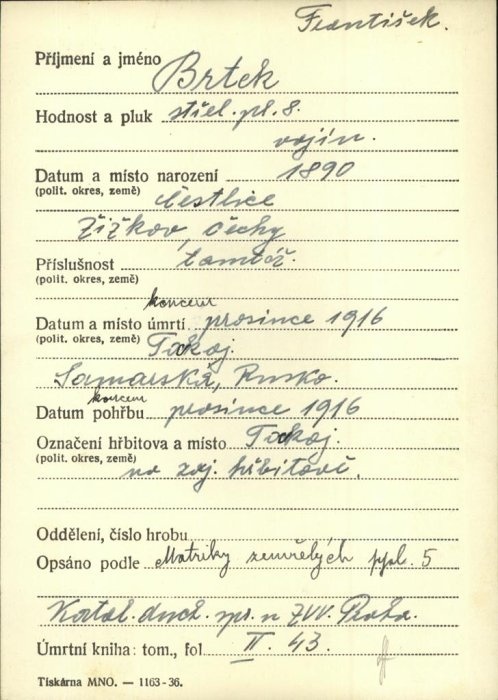 František.
Příjmení a jméno Brtek
Hodnost a pluk střel. pl. 8.
vojín.
Datum a místo narození 1890
(polit. okres, země) Čestlice
Žižkov, Čechy
Příslušnost tamtéž.
(polit. okres, země)
koncem
Datum a místo úmrtí prosince 1916
(polit. okres, země) Tockoj.
Samarská, Rusko.
koncem
Datum pohřbu prosince 1916
Označení hřbitova a místo Tockoj.
(polit. okres, země) na zaj. hřbitově.
Oddělení, číslo hrobu
Opsáno podle Matriky zemřelých ppl. 5
Katol. duch. spr. u ZVV. Praha.
Úmrtní kniha: tom., fol II. 43.
Tiskárna MNO. — 1163-36.